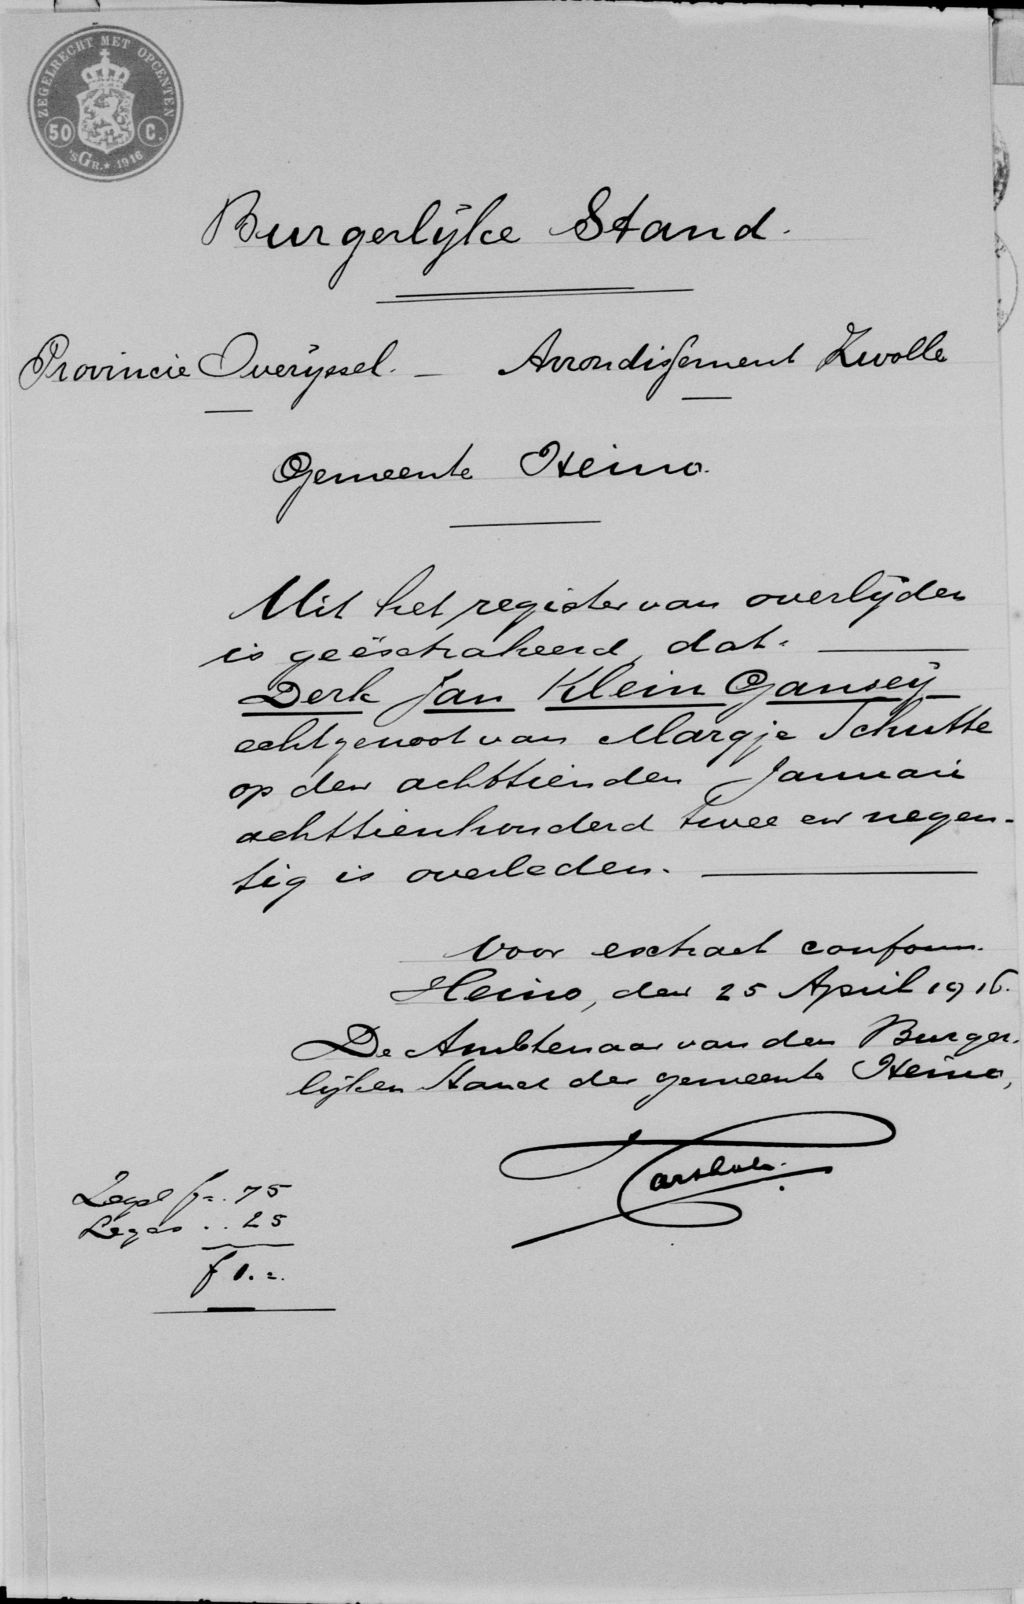 ZEGELRECHT MET OPCENTEN
50 C.
'sGr. * 1916
Burgerlijke Stand.
Provincie Overijssel. – Arrondissement Zwolle
Gemeente Heino.
Uit het register van overlijden
is geëxtraheerd, dat.
Derk Jan Klein Gansey
echtgenoot van Margje Schutte
op den achttienden Januari
achttienhonderd twee en negen-
tig is overleden.
Voor extract conform.
Heino, den 25 April 1916.
De Ambtenaar van den Burger-
lijken Stand der gemeente Heino,
Zegel f =.75
Leges .. 25
f 1.=.